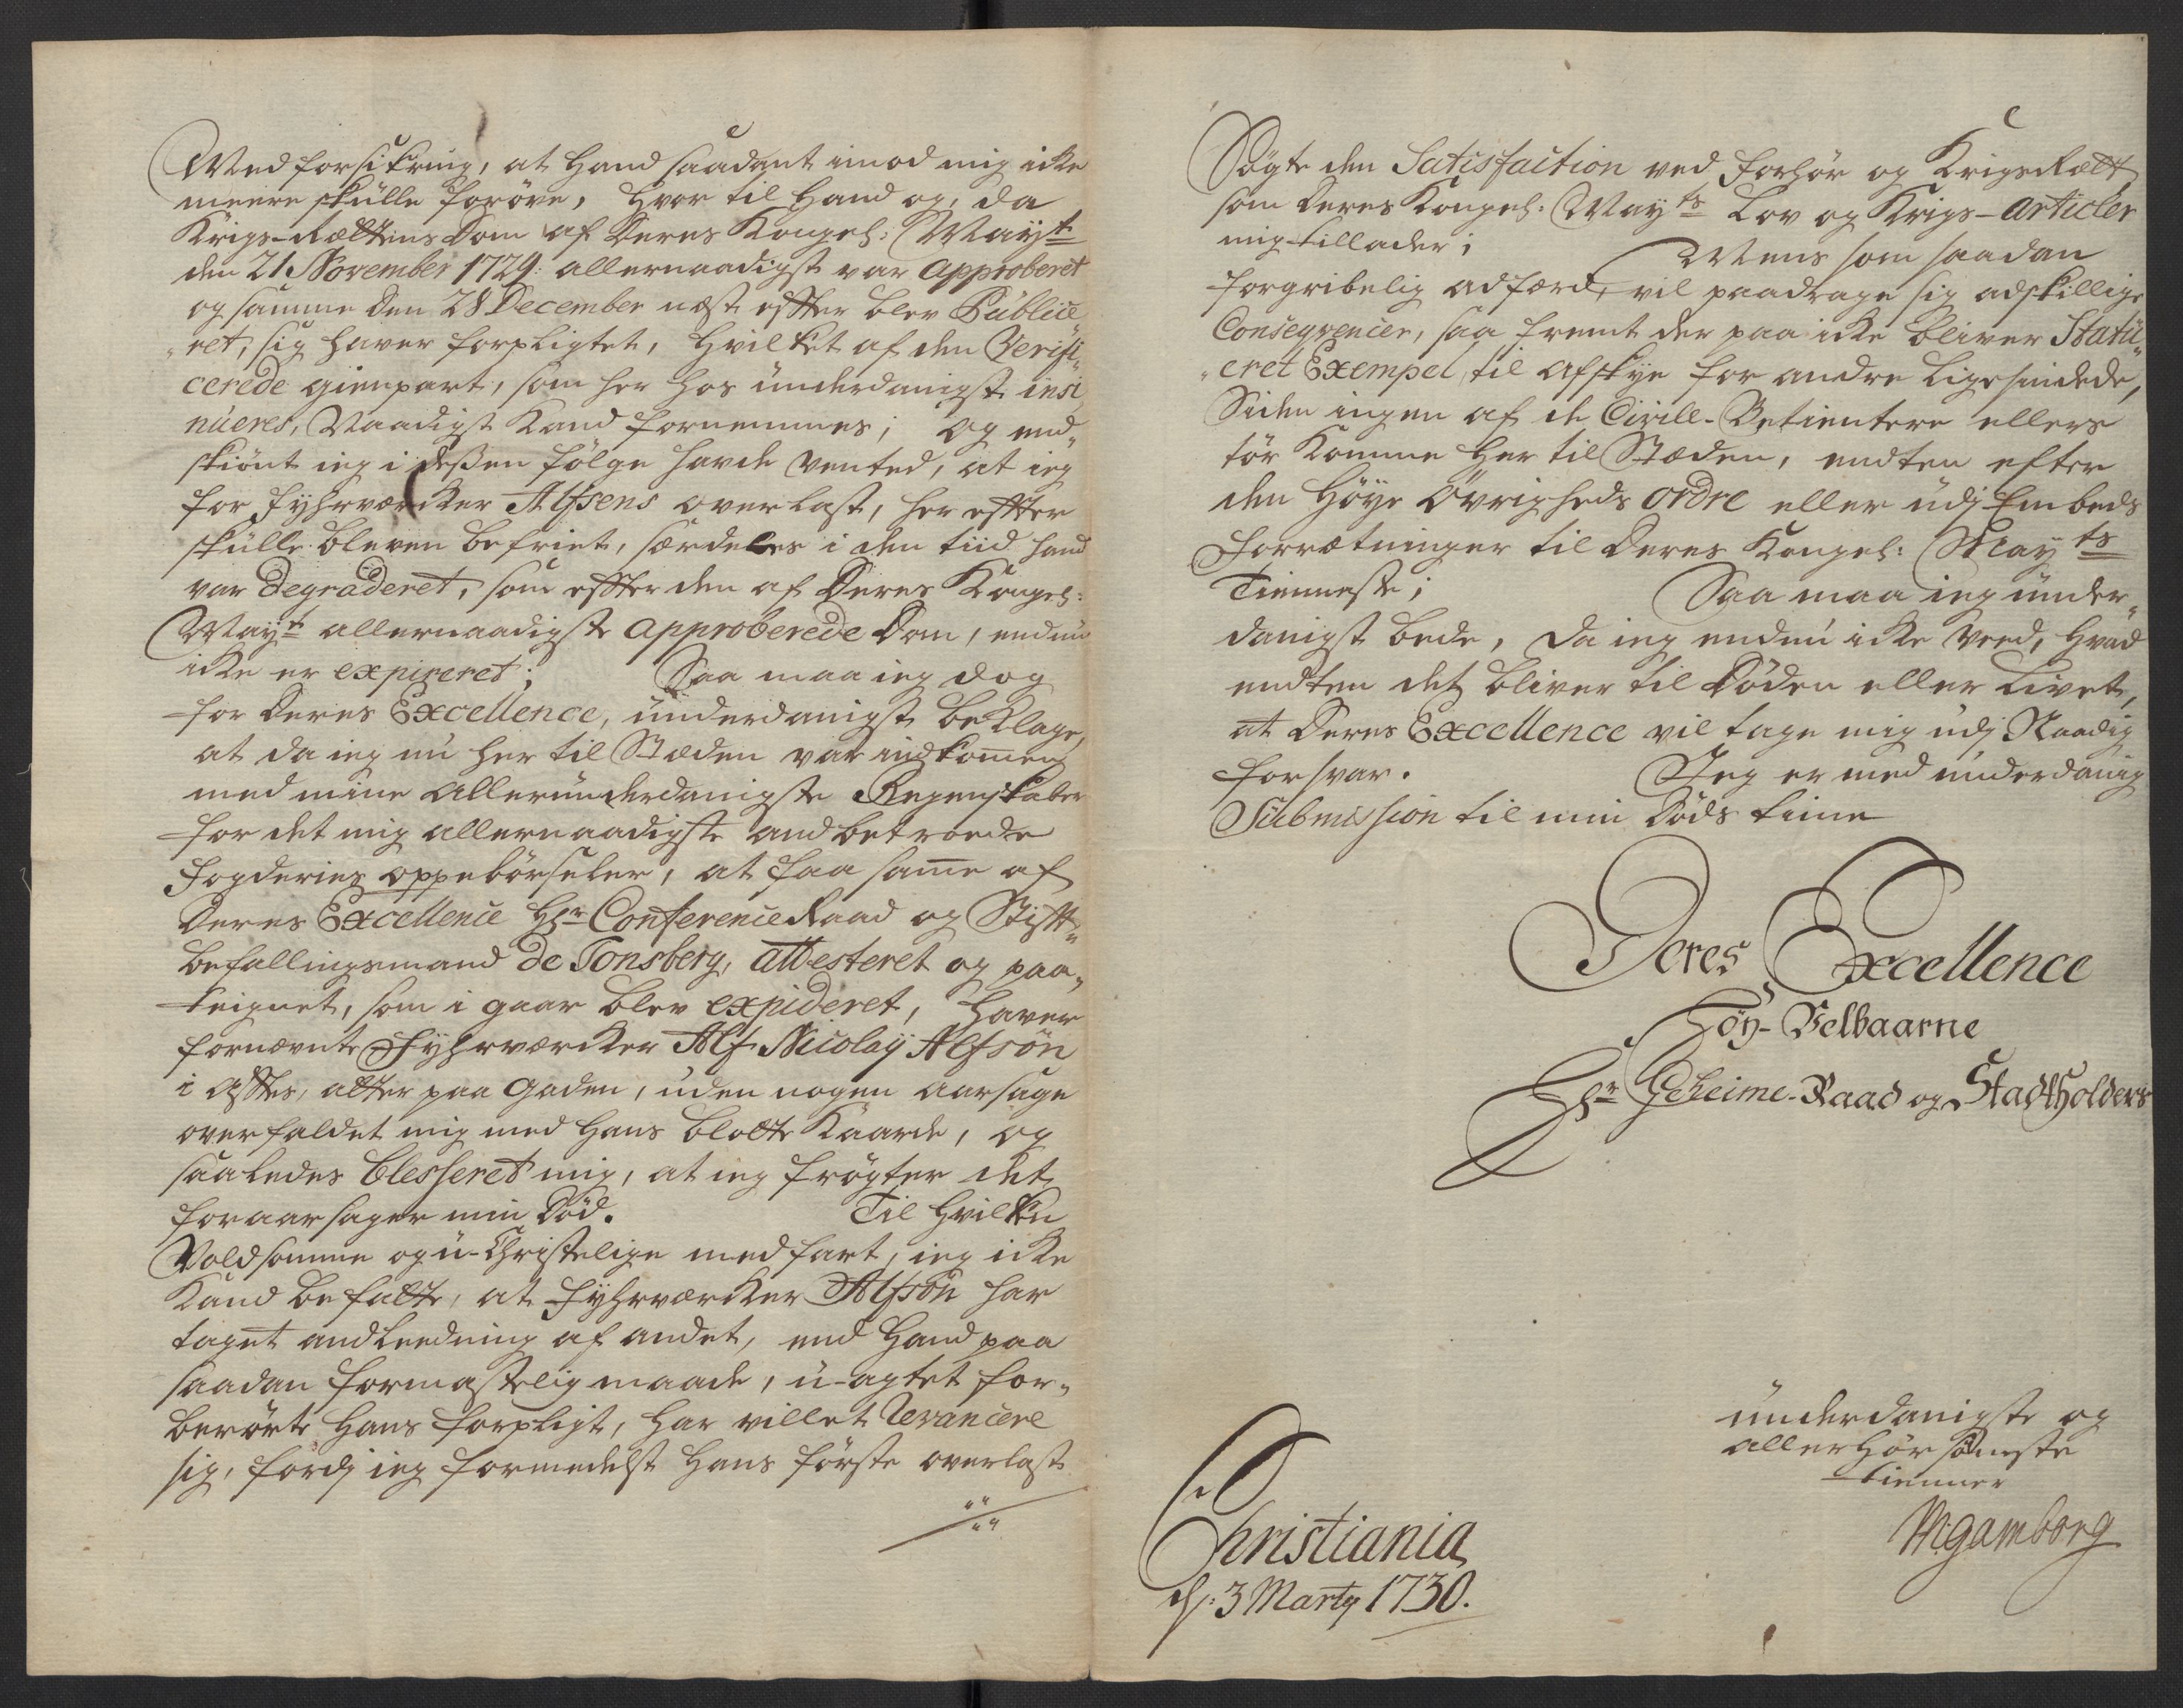 Med forsikring, at hand saadant imod mig icke
meere skulle forøve, hvor til hand og, da
Krigs-Rættens Dom af Deres Kongel: Mayt
den 21 November 1729: allernaadigst var approberet
og samme den 28 December næst effter blev Public
"ret, sig haver forpligtet, hvilket af den Verifi„
cerede gienpart, som her hos underdanigst insi
nueres, Naadigst kand fornemmes; og end„
skiønt ieg i deßen følge hafde vented, at ieg
for Fyhrværcker Alfsens overlast, her effter
skulle bleven befriet, særdeles i den tiid hand
var degraderet, som effter den af Deres Kongel:
Mayt allernaadigste approberede Dom, endnu
icke er expireret; Saa maa ieg dog
for Deres Excellence, underdanigst beklage,
at da ieg nu her til Stæden var indkom̅en
med mine allerunderdanigste Regenskaber
for det mig allernaadigste andbetroede
Fogderies oppebørseler, at faa sam̅e af
Deres Excellence Hr Conference Raad og Stift„
befallingsmand de Tonsberg, attesteret og paa„
teignet, som i gaar blev expideret, haver
fornævnte Fyhrværcker Alf Nicolaÿ Alfsøn
i Aftes, atter paa gaden, uden nogen aarsage
overfaldet mig med hans blotte Kaarde, og
saaledes blesseret mig, at ieg frøgter det
foraarsager min Død. Til hvilken
Voldsomme og u-Christelige medfart, ieg icke
kand befatte, at Fyhrværcker Alfsøn har
taget andleedning af andet, end hand paa
saadan formastelig maade, u-agtet for„
berørte hans forpligt, har villet revancere
sig, fordj ieg formedelst hans første overlast
Søgte den Satisfaction ved forhør og KrigsRætt
som Deres Kongel: Mayts Lov og Krigs-Articler
mig tillader; Mens som saadan
forgribelig adfærd, vil paadrage sig adskillige
Conseqvencer, saa fremt der paa icke bliver Statu„
"eret Exempel, til afskye for andre ligesindede,
Siden ingen af de Civill-Betientere ellers
tør komme her til Stæden, endten efter
den Høye Øvrigheds ordre eller udj Embeds
Forrætninger til Deres Kongel: Mayts
Tienneste; Saa maa ieg under„
danigst bede, da ieg endnu icke veed, hvad
endten det bliver til Døden eller Livet,
at Deres Excellence vil tage mig udj Naadig
forsvar. Jeg er med underdanig
Submission til min Døds time
Deres Excellence
Høy-Velbaarne
Hr Geheime-Raad og Stadtholders
underdanigste og
allerhørsomeste
tienner
M: gamborg
Christiania
d: 3 Marty 1730.